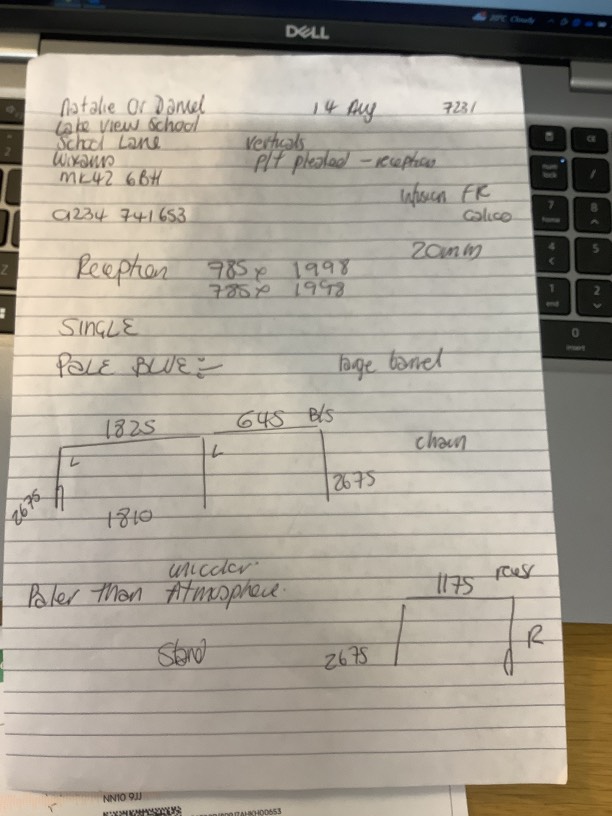 DELL
20°C Cloudy
Natalie Or Daniel 14 Aug 7231
Lake View School
School Lane verticals
Wixams P/f pleated - reception
MK42 6BH
Infusion FR
01234 741653 calico
20mm
Reception 985 x 1998
785 x 1998
SINGLE
PALE BLUE :- large barrel
1825 645 B/S
L L chain
2675 2675
1810
Paler than Atmosphere.
1175
2675 R
Stand
NN10 9JJ